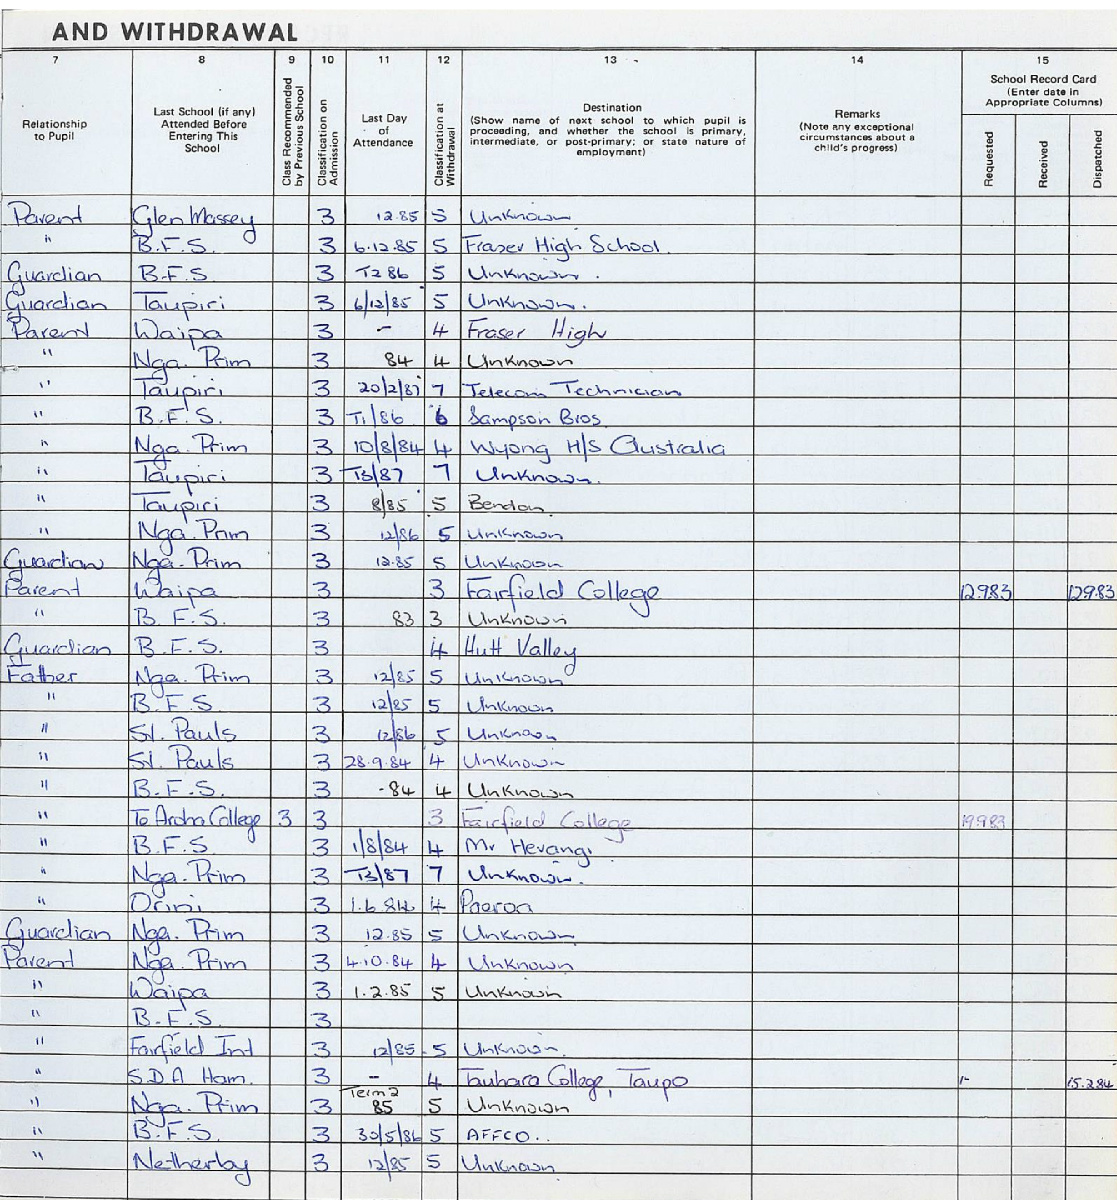 AND WITHDRAWAL
7 8 9 10 11 12 13 14 15
Relationship to Pupil
Last School (if any) Attended Before Entering This School
Class Recommended by Previous School
Classification on Admission
Last Day of Attendance
Classification at Withdrawal
Destination
(Show name of next school to which pupil is proceeding, and whether the school is primary, intermediate, or post-primary; or state nature of employment)
Remarks
(Note any exceptional circumstances about a child's progress)
School Record Card
(Enter date in Appropriate Columns)
Requested
Received
Dispatched
Parent Glen Massey 3 12.85 5 Unknown
" B.F.S. 3 6.12.85 5 Fraser High School.
Guardian B.F.S 3 T2 86 5 Unknown.
Guardian Taupiri 3 6/12/85 5 Unknown.
Parent Waipa 3 - 4 Fraser High
" Nga. Prim 3 84 4 Unknown
" Taupiri 3 20/2/87 7 Telecom Technician
" B.F.S. 3 T1/86 6 Sampson Bros.
" Nga. Prim 3 10/8/84 4 Wyong H/S Australia
" Taupiri 3 T3/87 7 Unknown.
" Taupiri 3 8/85 5 Bendon
" Nga. Prim 3 12/86 5 Unknown
Guardian Nga. Prim 3 12.85 5 Unknown
Parent Waipa 3 3 Fairfield College 12983 12983
" B.F.S. 3 83 3 Unknown
Guardian B.F.S. 3 4 Hutt Valley
Father Nga. Prim 3 12/85 5 Unknown
" B.F.S 3 12/85 5 Unknown
" St. Pauls 3 12/86 5 Unknown
" St. Pauls 3 28.9.84 4 Unknown
" B.F.S. 3 -84 4 Unknown
" Te Aroha College 3 3 3 Fairfield College 19983
" B.F.S 3 1/8/84 4 Mr Herangi
" Nga. Prim 3 T3/87 7 Unknown.
" Orini 3 1.6 84 4 Paeroa
Guardian Nga. Prim 3 12.85 5 Unknown
Parent Nga. Prim 3 4.10.84 4 Unknown
" Waipa 3 1.2.85 5 Unknown
" B.F.S. 3
" Fairfield Int 3 12/85 5 Unknown.
" S.D.A Ham. 3 - 4 Tauhara College, Taupo 15.2.84
" Nga. Prim 3 Term 2 85 5 Unknown
" B.F.S. 3 30/5/86 5 AFFCO..
" Netherby 3 12/85 5 Unknown